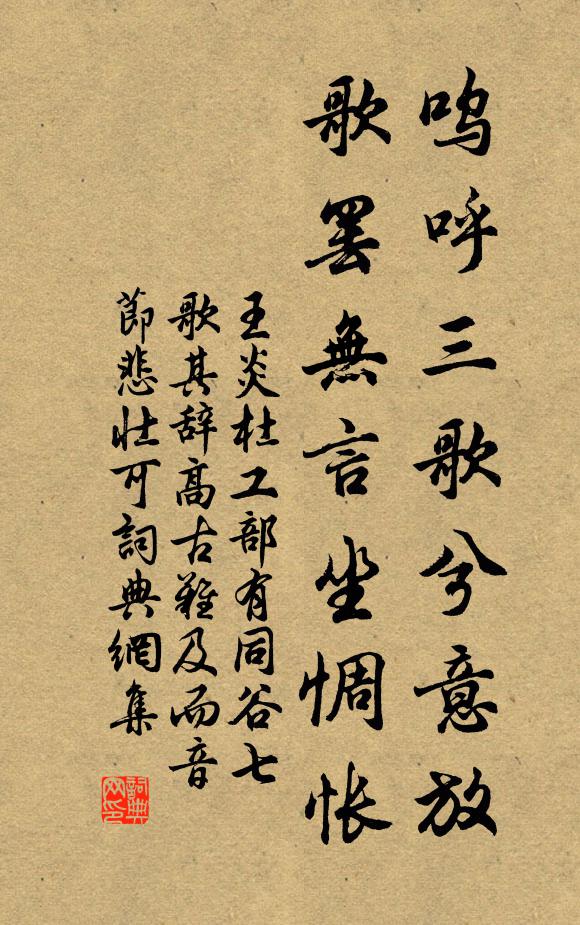 呜呼三歌兮意放
歌罢無言坐惆怅
王炎杜工部有同谷七
歌其辞高古難及而音
節悲壮可詞典網集
詞典網印